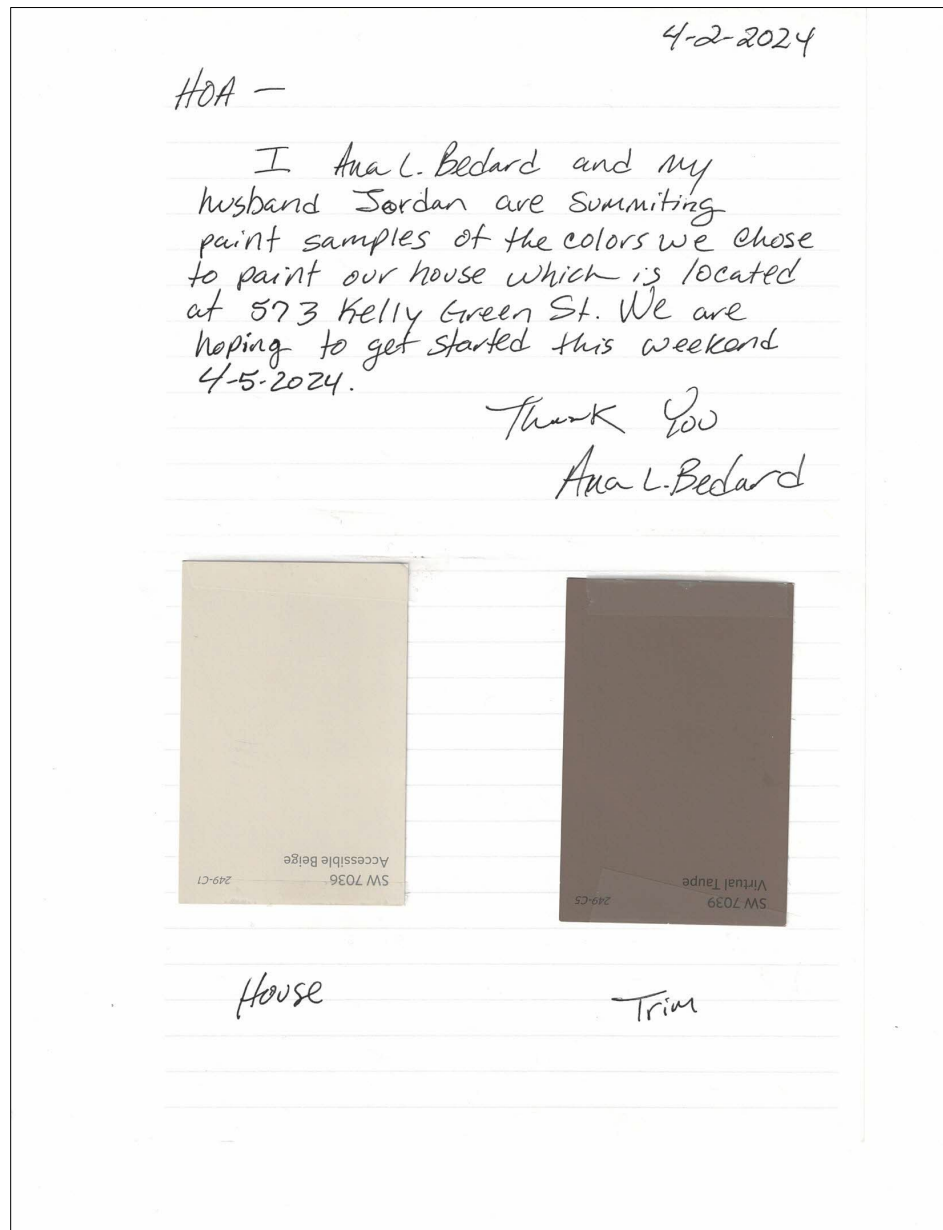 4-2-2024
HOA —
I Ana L. Bedard and my
husband Jordan are Summiting
paint samples of the colors we chose
to paint our house which is located
at 573 Kelly Green St. We are
hoping to get started this weekend
4-5-2024.
Thank You
Ana L. Bedard
SW 7036
Accessible Beige
249-C1
SW 7039
Virtual Taupe
249-C5
House
Trim